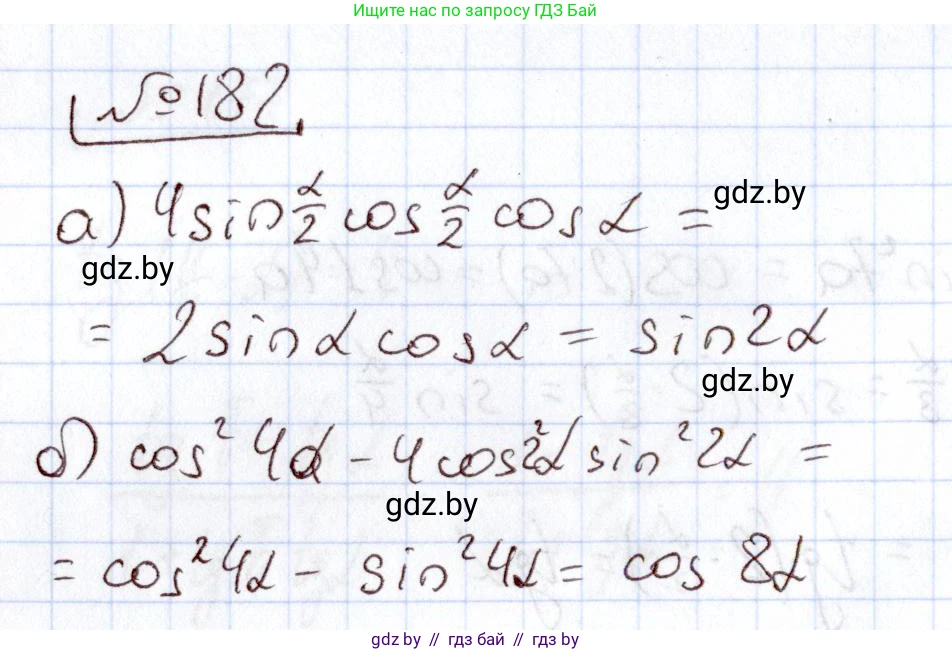 Ищите нас по запросу ГДЗ Бай
№182.
а) 4 sin α/2 cos α/2 cos α =
gdz.by
gdz.by
= 2 sin α cos α = sin 2α
gdz.by
б) cos² 4α - 4 cos² 2α sin² 2α =
gdz.by
= cos² 4α - sin² 4α = cos 8α
gdz.by // гдз бай // гдз by